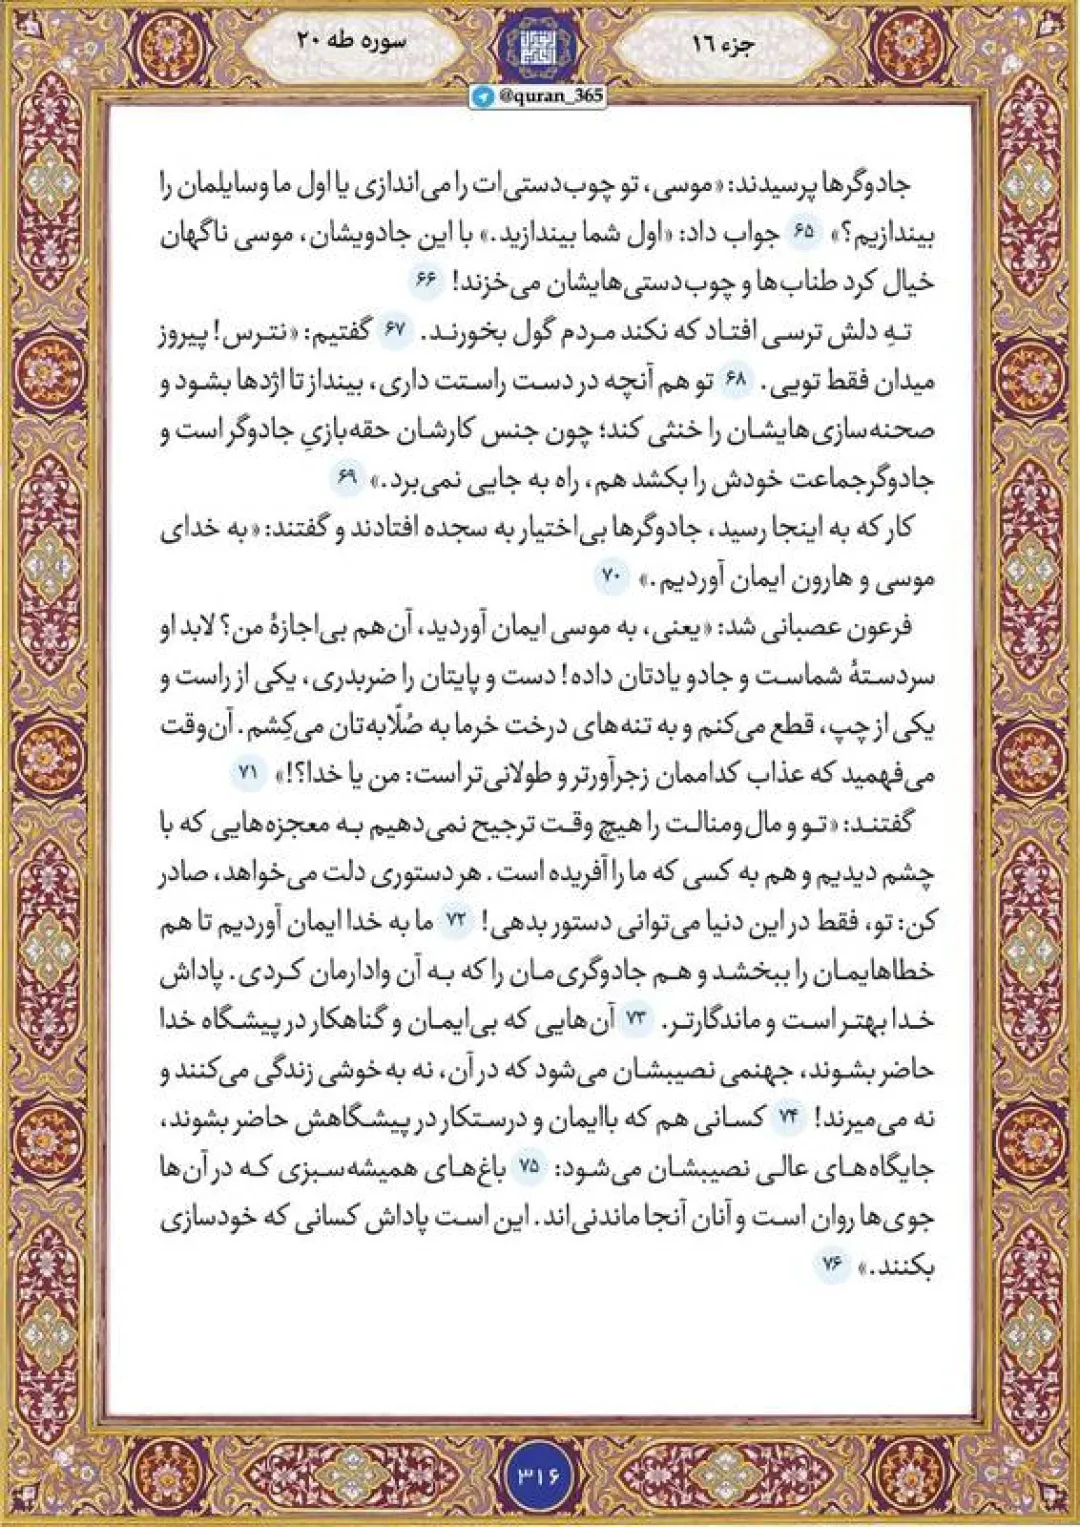 جزء ۱۶
سوره طه ۲۰
@quran_365
جادوگرها پرسیدند: «موسی، تو چوب‌دستی‌ات را می‌اندازی یا اول ما وسایلمان را
بیندازیم؟» ۶۵ جواب داد: «اول شما بیندازید.» با این جادویشان، موسی ناگهان
خیال کرد طناب‌ها و چوب‌دستی‌هایشان می‌خزند! ۶۶
تهِ دلش ترسی افتاد که نکند مردم گول بخورند. ۶۷ گفتیم: «نترس! پیروز
میدان فقط تویی. ۶۸ تو هم آنچه در دست راستت داری، بینداز تا اژدها بشود و
صحنه‌سازی‌هایشان را خنثی کند؛ چون جنس کارشان حقه‌بازیِ جادوگر است و
جادوگرجماعت خودش را بکشد هم، راه به جایی نمی‌برد.» ۶۹
کار که به اینجا رسید، جادوگرها بی‌اختیار به سجده افتادند و گفتند: «به خدای
موسی و هارون ایمان آوردیم.» ۷۰
فرعون عصبانی شد: «یعنی، به موسی ایمان آوردید، آن‌هم بی‌اجازهٔ من؟ لابد او
سردستهٔ شماست و جادو یادتان داده! دست و پایتان را ضربدری، یکی از راست و
یکی از چپ، قطع می‌کنم و به تنه‌های درخت خرما به صُلّابه‌تان می‌کِشم. آن‌وقت
می‌فهمید که عذاب کداممان زجرآورتر و طولانی‌تر است: من یا خدا؟!» ۷۱
گفتند: «تو و مال‌ومنالت را هیچ وقت ترجیح نمی‌دهیم به معجزه‌هایی که با
چشم دیدیم و هم به کسی که ما را آفریده است. هر دستوری دلت می‌خواهد، صادر
کن: تو، فقط در این دنیا می‌توانی دستور بدهی! ۷۲ ما به خدا ایمان آوردیم تا هم
خطاهایمان را ببخشد و هم جادوگری‌مان را که به آن وادارمان کردی. پاداش
خدا بهتر است و ماندگارتر. ۷۳ آن‌هایی که بی‌ایمان و گناهکار در پیشگاه خدا
حاضر بشوند، جهنمی نصیبشان می‌شود که در آن، نه به خوشی زندگی می‌کنند و
نه می‌میرند! ۷۴ کسانی هم که باایمان و درستکار در پیشگاهش حاضر بشوند،
جایگاه‌های عالی نصیبشان می‌شود: ۷۵ باغ‌های همیشه‌سبزی که در آن‌ها
جوی‌ها روان است و آنان آنجا ماندنی‌اند. این است پاداش کسانی که خودسازی
بکنند.» ۷۶
۳۱۶